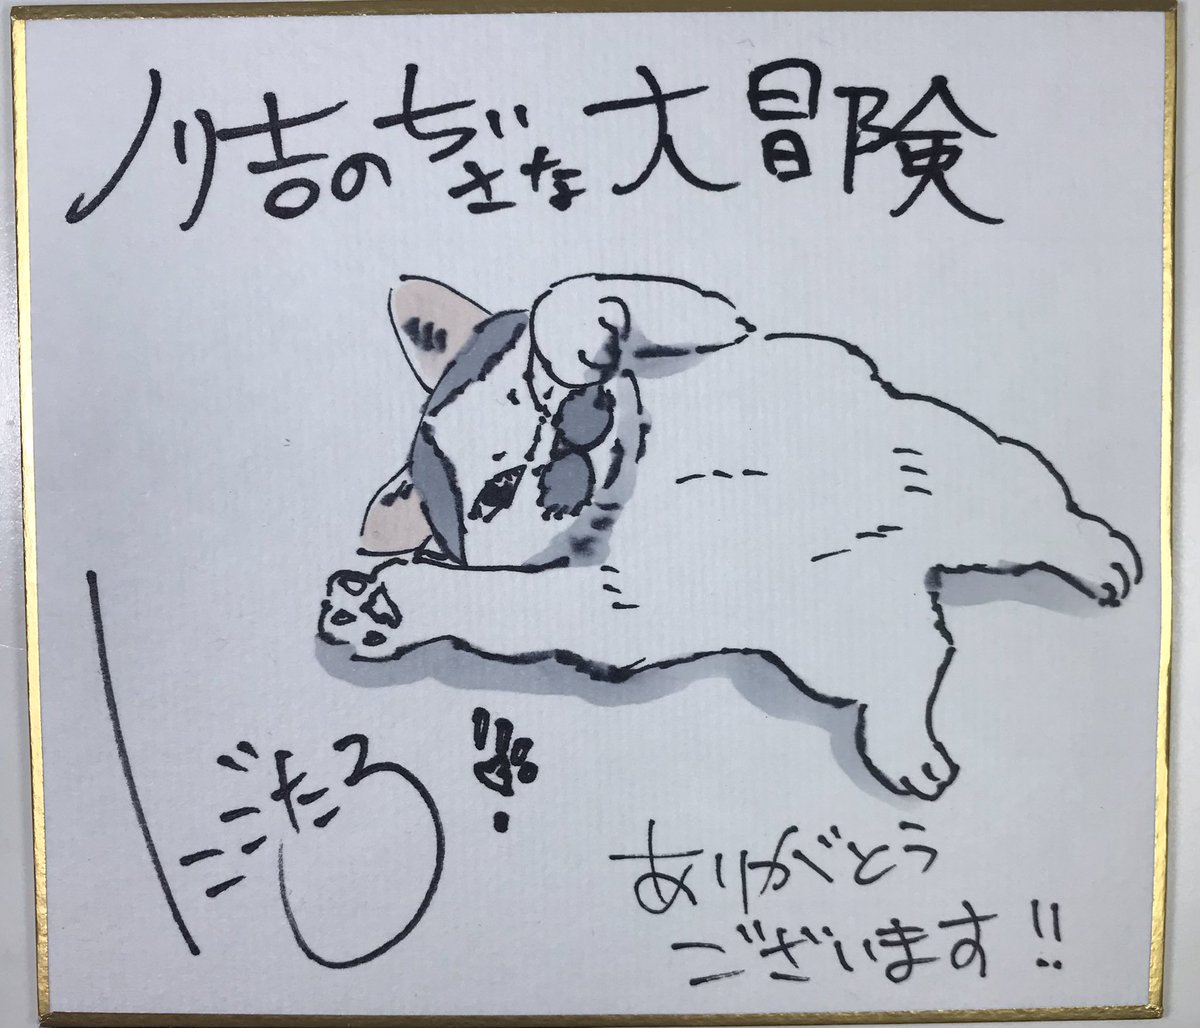 ノリ吉のちいさな大冒険
ありがとう
ございます!!